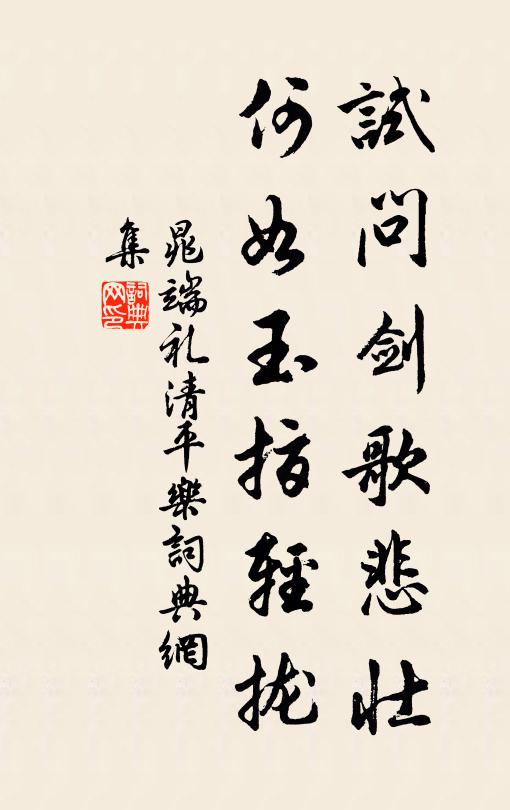 試問劍歌悲壯
何如玉指輕拢
晁端礼清平樂詞典網
集
詞典
网印